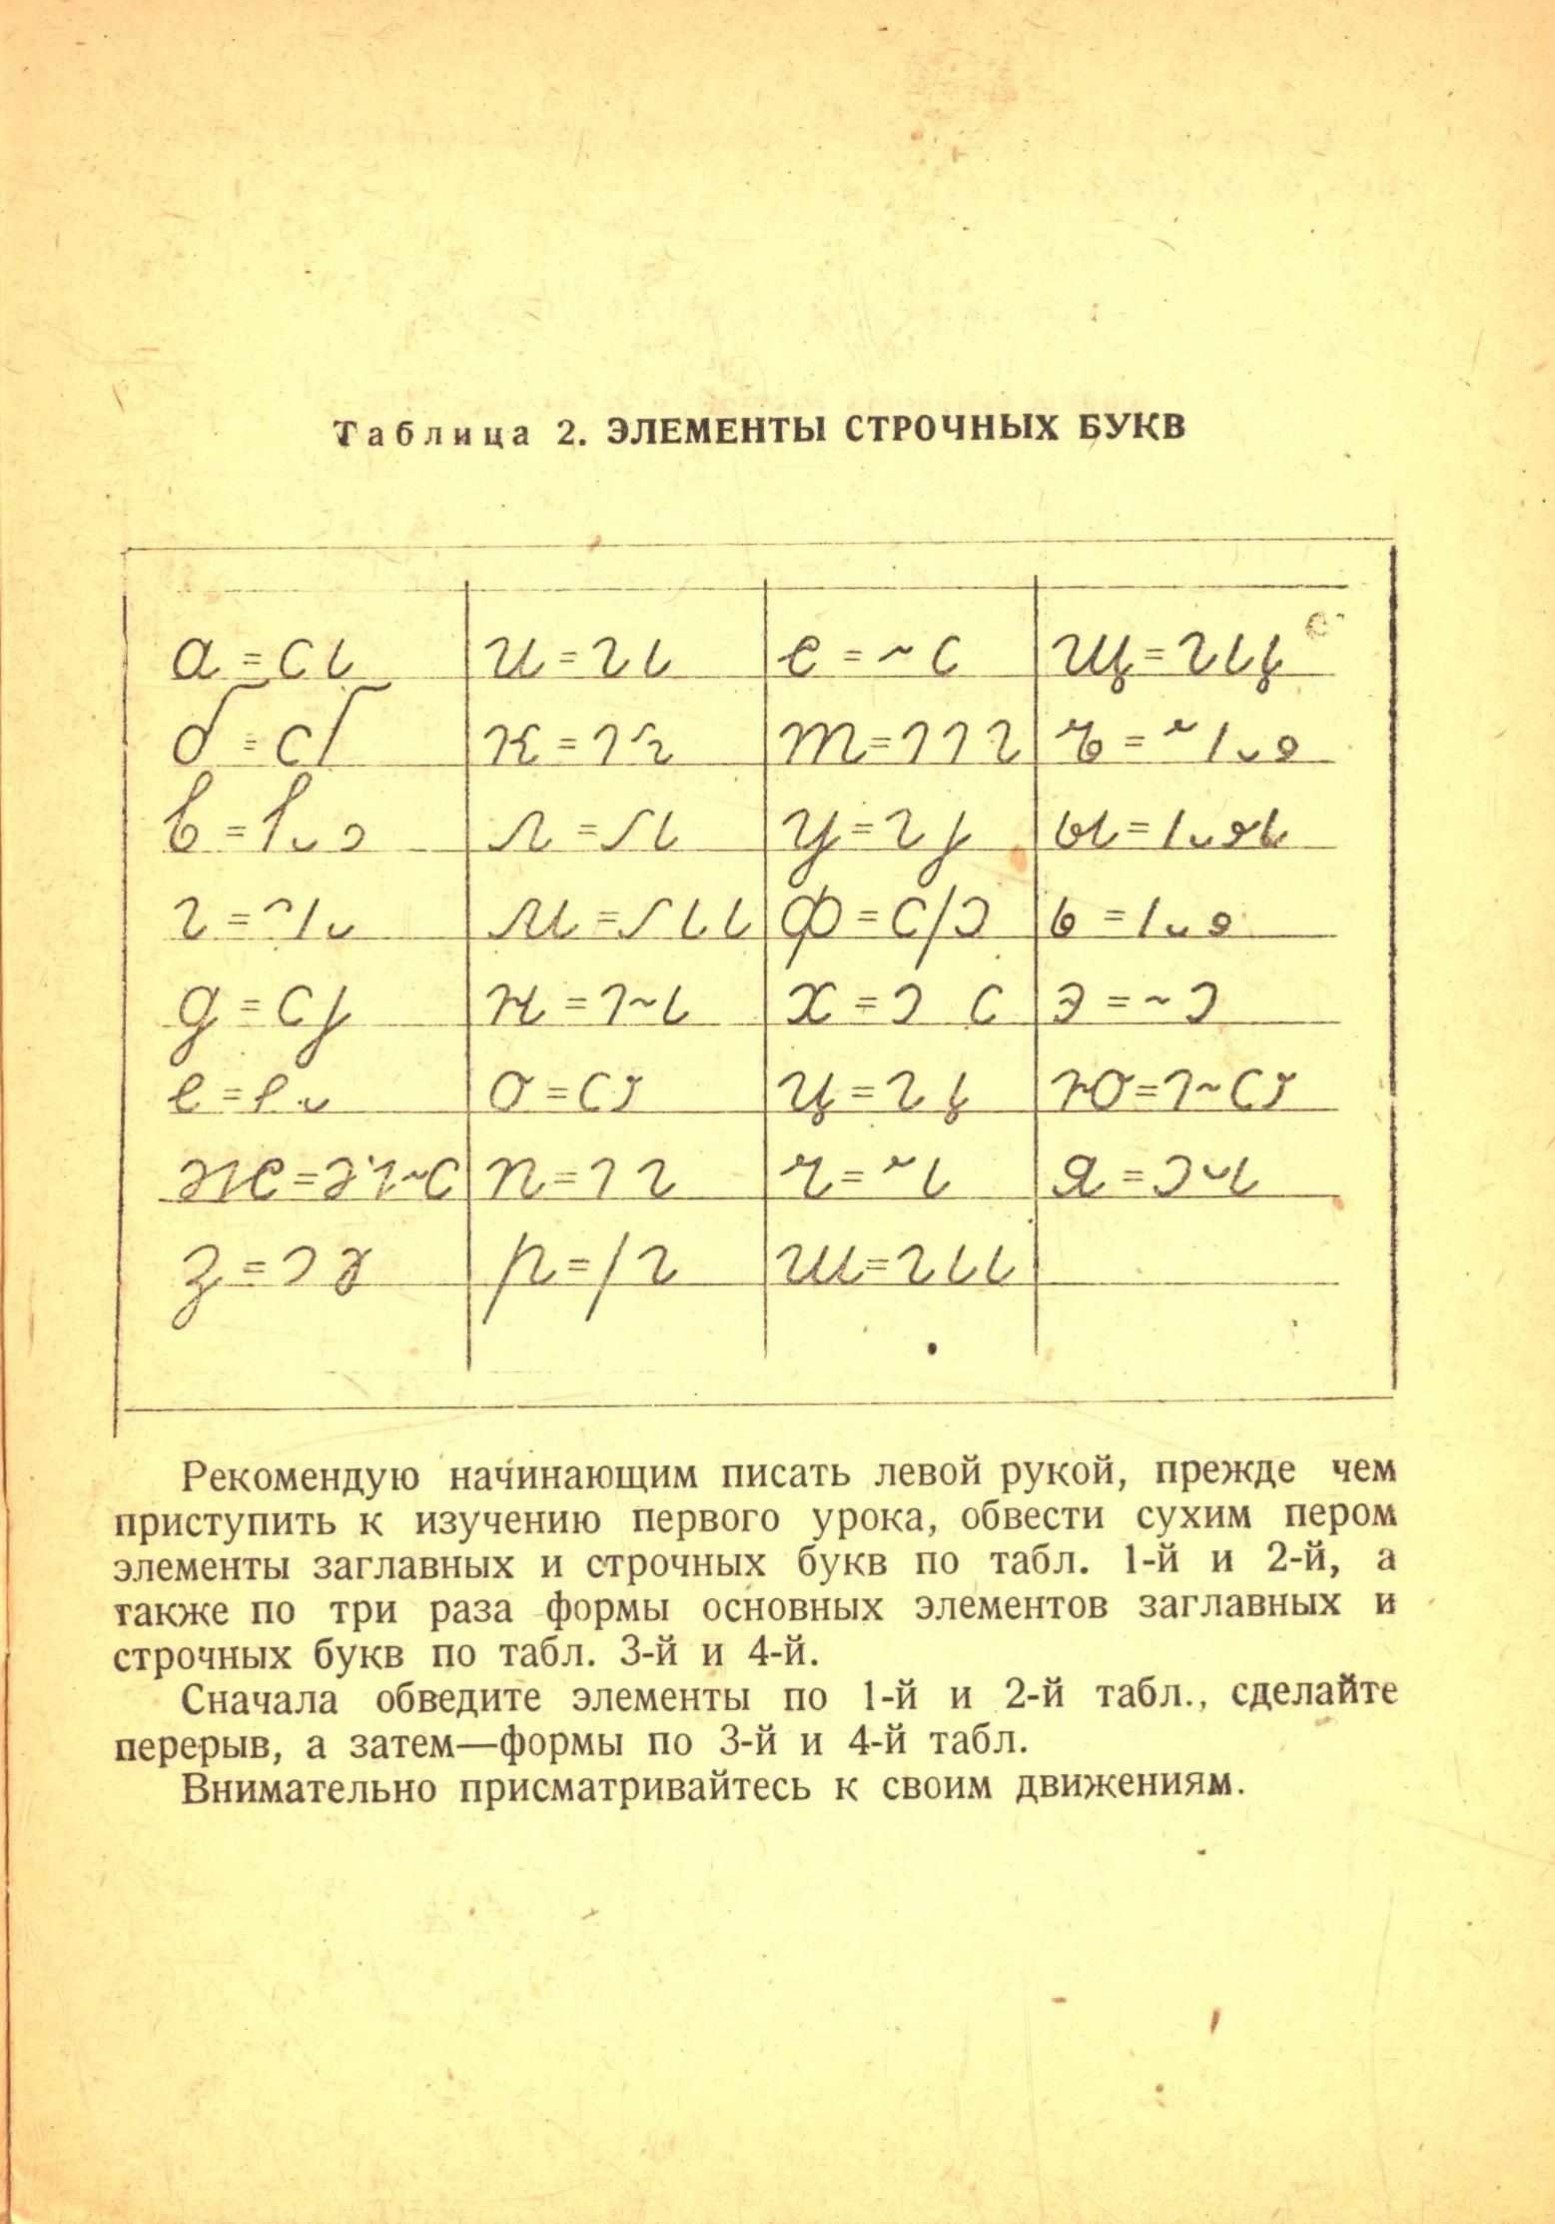 Таблица 2. ЭЛЕМЕНТЫ СТРОЧНЫХ БУКВ
а = с и = е = щ =
б = к = т = ъ =
в = л = у = ы =
г = м = ф = с/э ь =
д = н = х = э с э = ~ э
е = о = ц = ю =
ж = п = ч = я =
з = р = ш =
Рекомендую начинающим писать левой рукой, прежде чем
приступить к изучению первого урока, обвести сухим пером
элементы заглавных и строчных букв по табл. 1-й и 2-й, а
также по три раза формы основных элементов заглавных и
строчных букв по табл. 3-й и 4-й.
Сначала обведите элементы по 1-й и 2-й табл., сделайте
перерыв, а затем—формы по 3-й и 4-й табл.
Внимательно присматривайтесь к своим движениям.